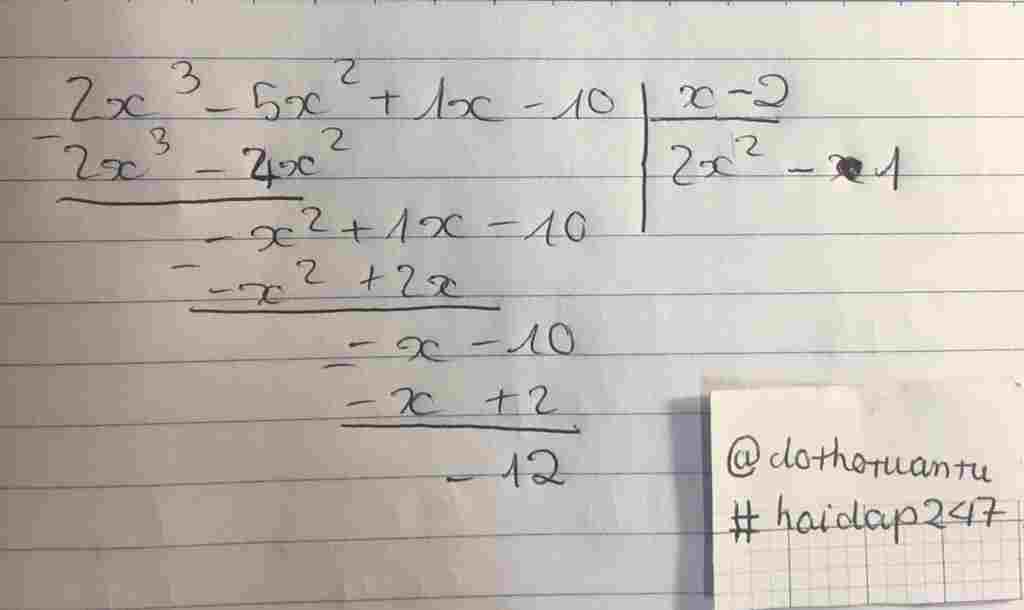 2x³ - 5x² + 1x - 10 | x - 2
- 2x³ - 4x²
2x² - x 1
- x² + 1x - 10
- - x² + 2x
- x - 10
- - x + 2
- 12
@dothotuantu
#hoidap247